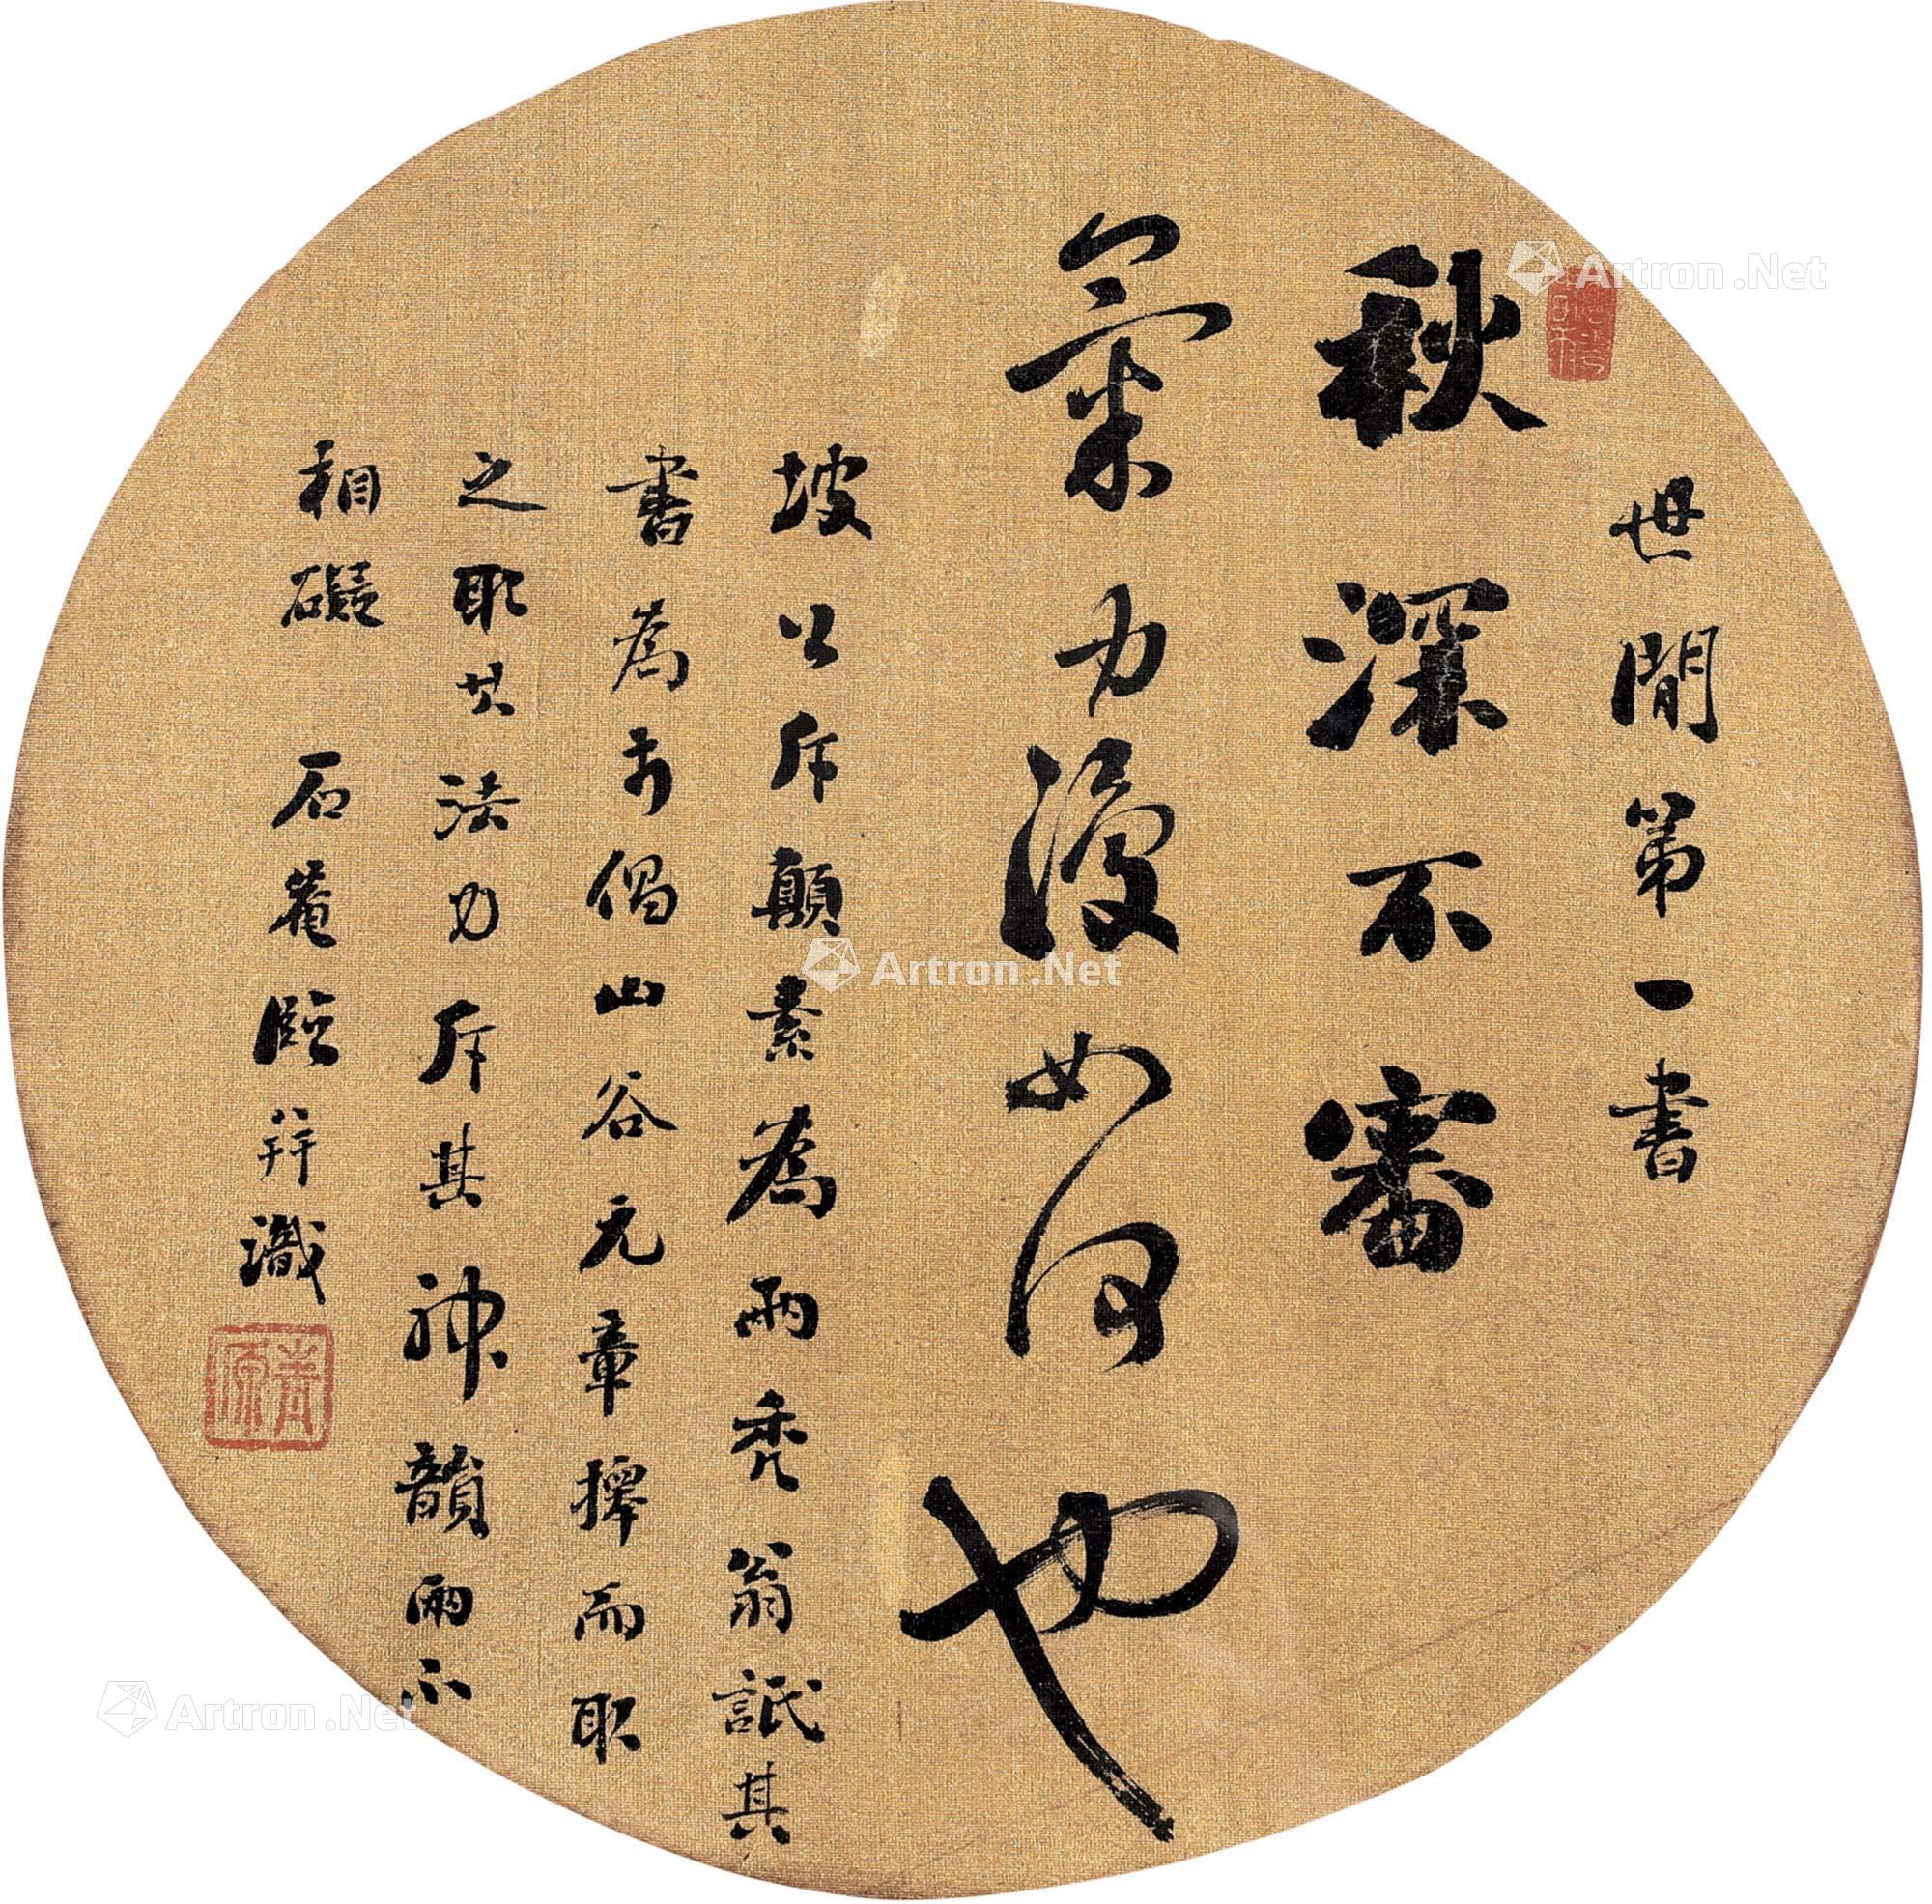 世間第一書
秋深不審
氣力復如何也
坡公斥顛素為兩禿翁詆其
書為市倡山谷元章擇而取
之取其法力斥其神韻兩不
相礙 石菴臨并識
青原
Artron.Net
Artron.Net
Artron.Net